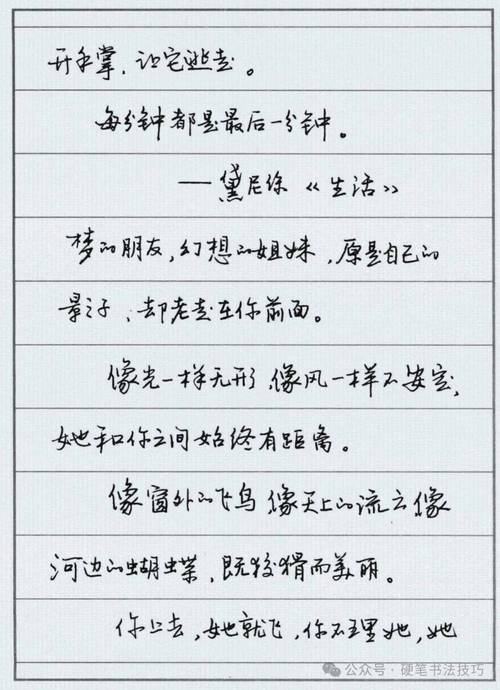 开手掌，让它逃走。
每分钟都是最后一分钟。
——黛尼徐《生活》
梦的朋友，幻想的姐妹，原是自己的
影子，却老走在你前面。
像光一样无形，像风一样不安定，
她和你之间始终有距离。
像窗外的飞鸟像天上的流云像
河边的蝴蝶，既狡猾而美丽。
你上去，她就飞，你不理她，她
公众号·硬笔书法技巧